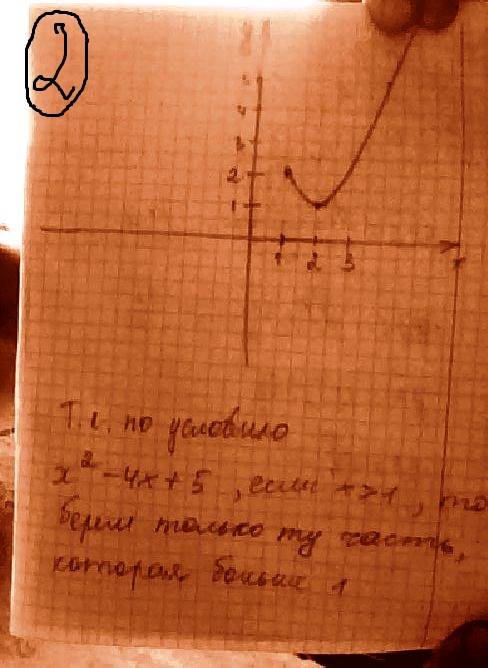 2
5
4
3
2
1
1 2 3
Т.к. по условию
x² - 4x + 5 , если x ≥ 1 , то
берем только ту часть,
которая больше 1